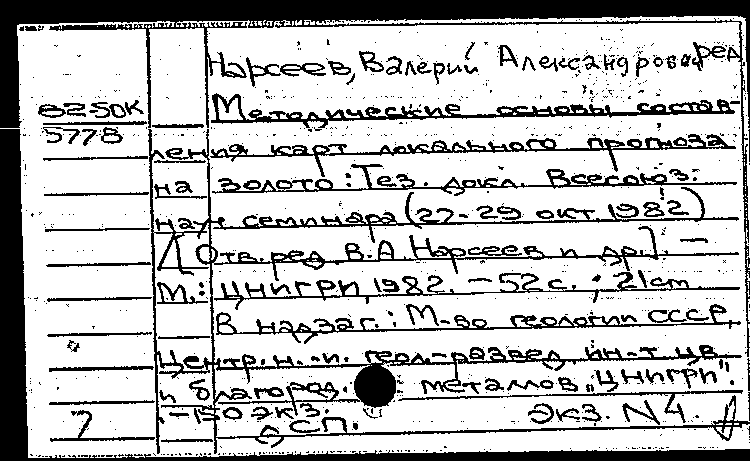 Нарсеев, Валерий Александрович ред
8250К
5778
Методические основы состав-
ления карт локального прогноза
на золото : Тез. докл. Всесоюз.
науч семинара (27-29 окт. 1982)
/ [Отв. ред. В.А. Нарсеев и др.]. —
М. : ЦНИГРИ, 1982. — 52 с. ; 21 cm
В надзаг. : М-во геологии СССР,
Центр. н.-и. геол.-развед. ин-т цв.
и благород. металлов „ЦНИГРИ".
. — 150 экз.
ДСП. Экз. N 4.
7